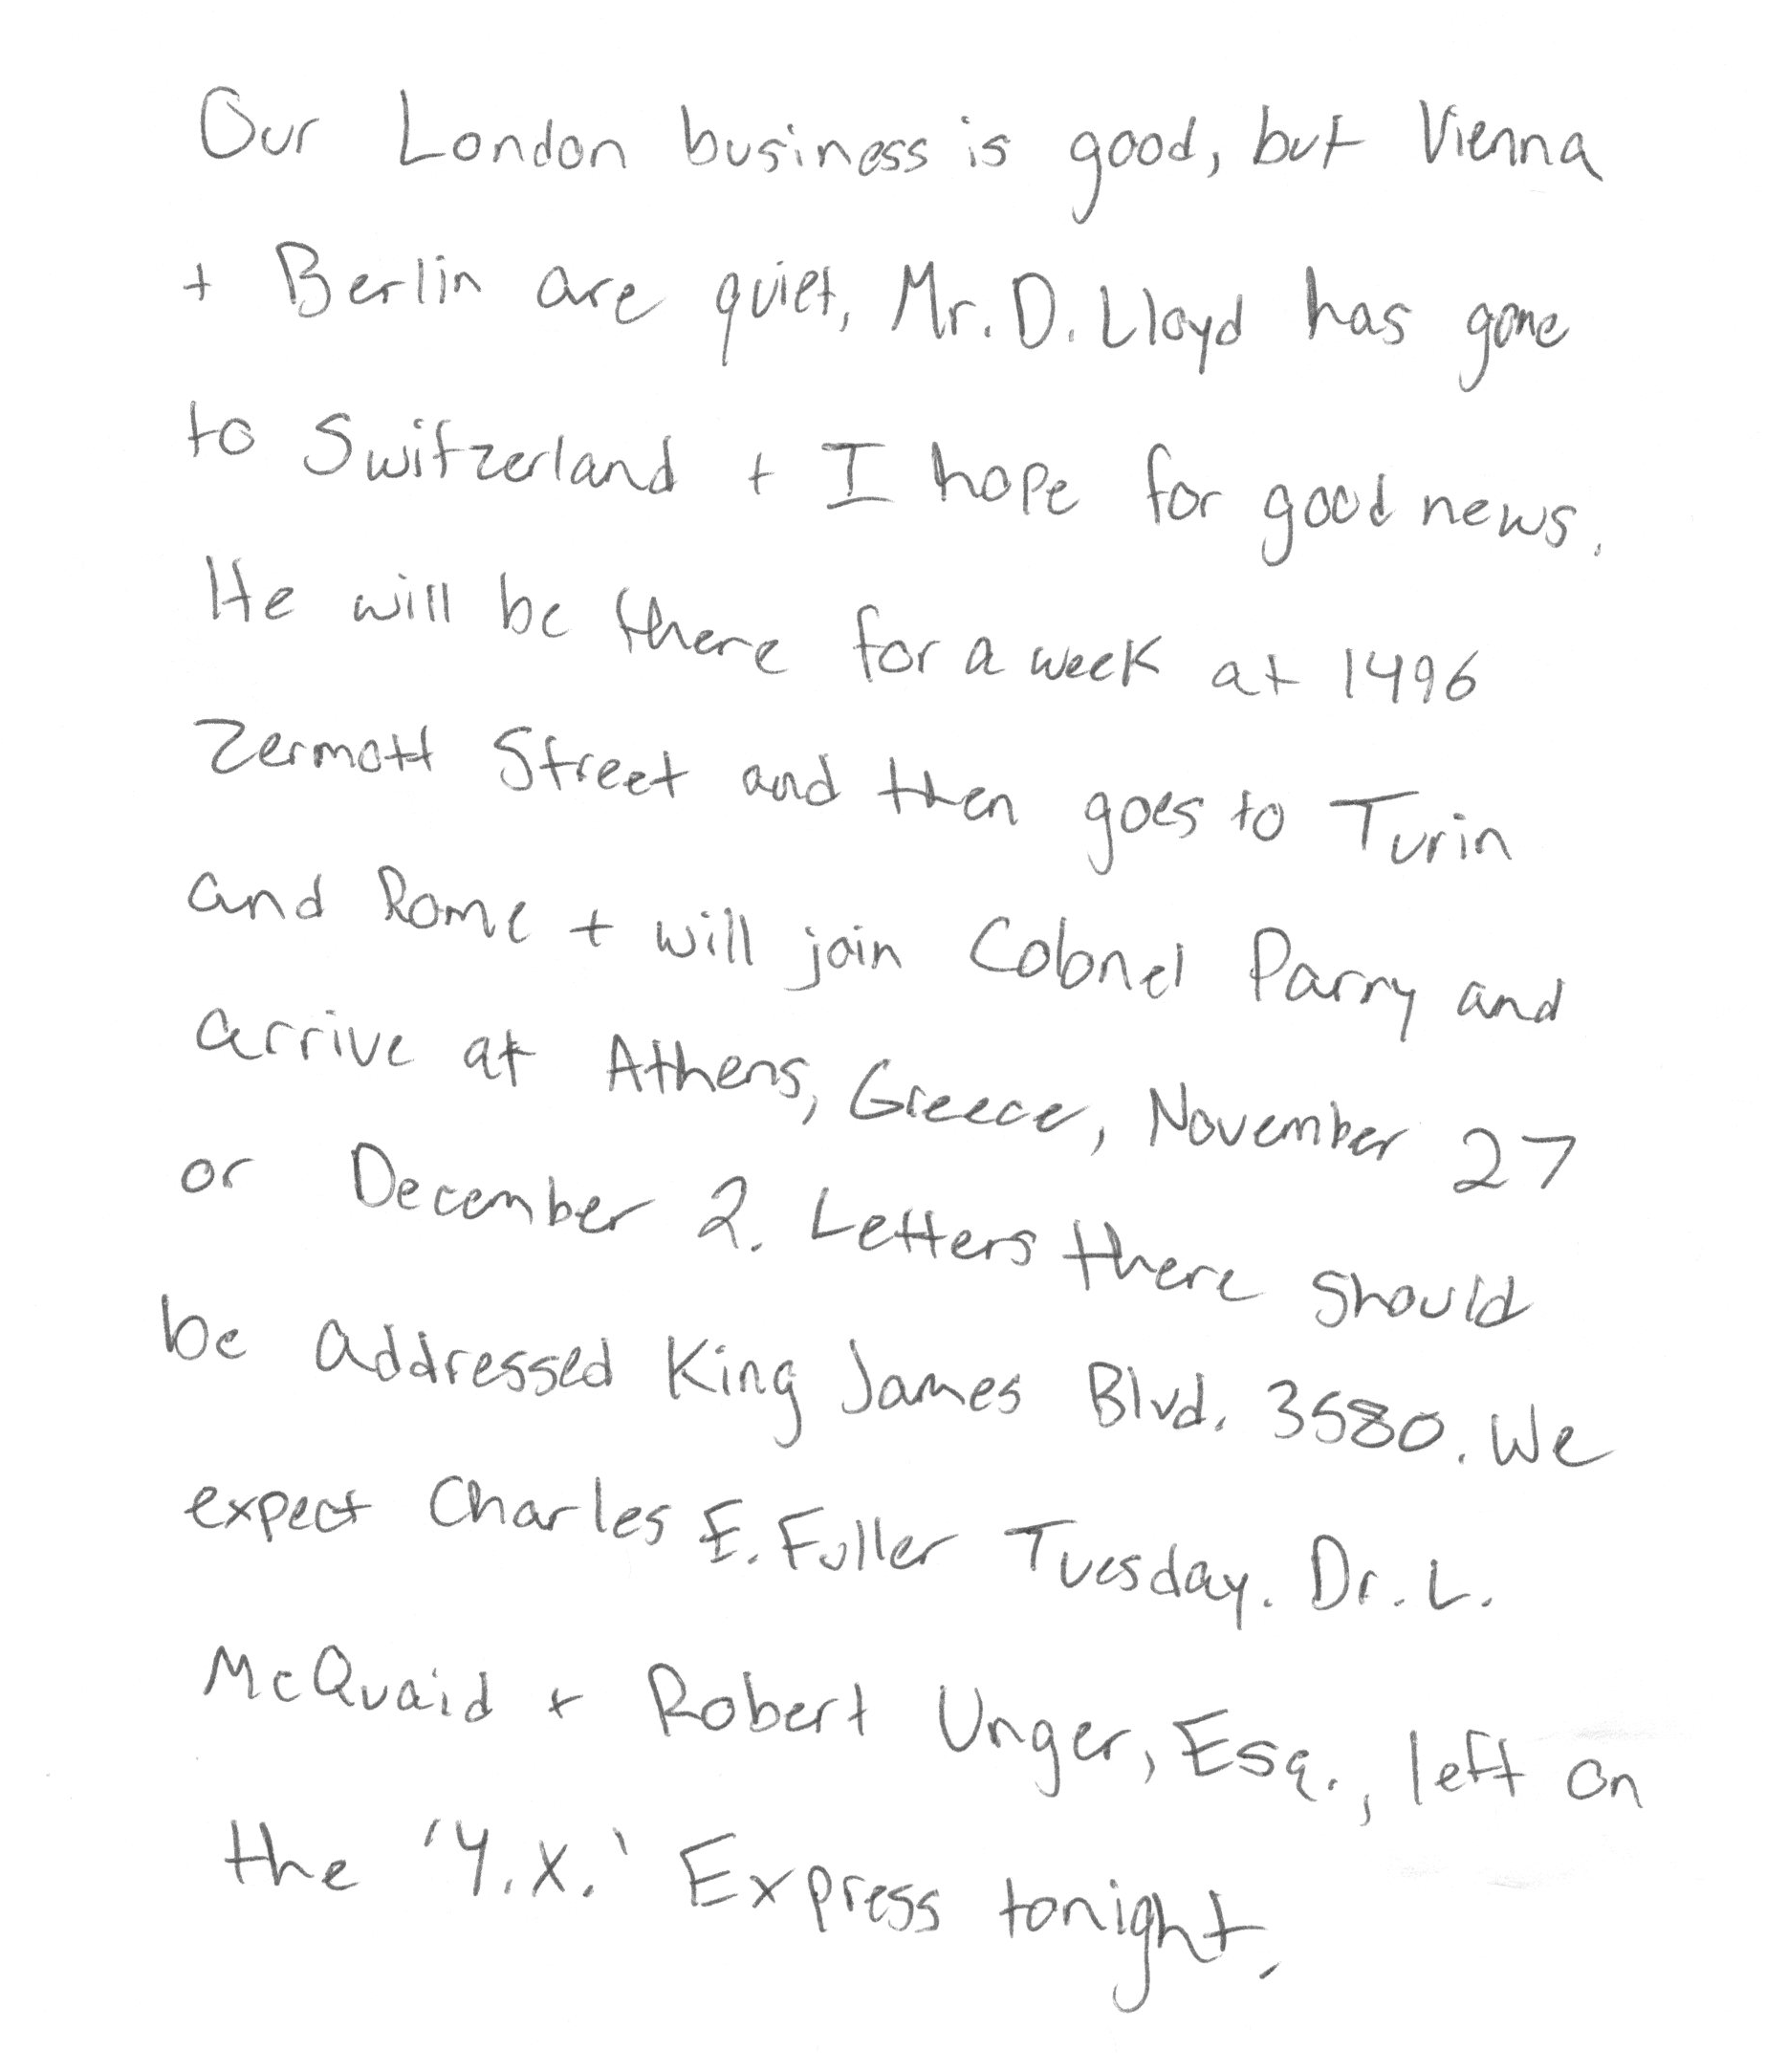 Our London business is good, but Vienna
+ Berlin are quiet, Mr. D. Lloyd has gone
to Switzerland + I hope for good news.
He will be there for a week at 1496
Zermott Street and then goes to Turin
and Rome + will join Colonel Parry and
arrive at Athens, Greece, November 27
or December 2. Letters there should
be addressed King James Blvd. 3580. We
expect Charles E. Fuller Tuesday. Dr. L.
McQuaid + Robert Unger, Esq., left on
the 'Y.X.' Express tonight.